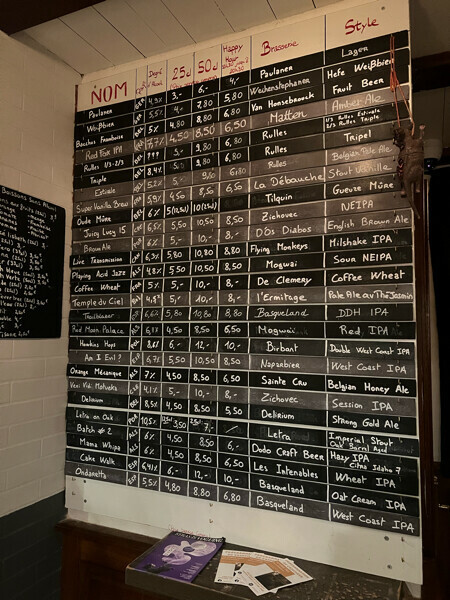 NOM Degré d'alcool 25cl 50cl Happy Hour Brasserie Style
Paulaner 4,9% 3,- 6,- 4,- Paulaner Lager
Weißbier 5,5% 4,- 7,80 5,80 Weihenstephaner Hefe Weißbier
Bacchus Framboise 5% 4,80 8,80 6,50 Van Honsebrouck Fruit Beer
Red Fox IPA 7,7% 4,50 8,50 6,50 Malten Amber Ale
Rulles 1/3-2/3 ??? 5,- 9,80 6,80 Rulles 1/3 Rulles Estivale 2/3 Rulles Triple
Triple 8,4% 5,- 9,80 6,80 Rulles Tripel
Estivale 5,2% 5,- 9,60 6,80 Rulles Belgian Pale Ale
Super Vanilla Breu 5,9% 4,50 8,50 6,50 La Débauche Stout Vanille
Oude Mûre 6% Tilquin Gueuze Mûre
Juicy Lucy 15 6,5% 5,50 10,50 8,50 Zichovec NEIPA
Brown Ale 6% 5,- 10,- 8,- D'Òs Diabos English Brown Ale
Live Transmission 6,3% 5,80 10,80 8,80 Flying Monkeys Milshake IPA
Playing Acid Jazz 4,8% 5,50 10,50 8,50 Mogwai Sour NEIPA
Coffee Wheat 5% 5,- 10,- 8,- De Clemery Coffee Wheat
Temple du Ciel 5,- 10,- 8,- l'Ermitage Pale Ale au Thé Jasmin
Trailblazer 6,2% 5,80 10,80 8,80 Basqueland DDH IPA
Red Moon Palace 4,50 8,50 6,50 Mogwai Red IPA
Hawkins Hops 6,- 12,- 10,- Birbant Double West Coast IPA
Am I Evil? 6,7% 5,50 10,50 8,50 Naparbier West Coast IPA
Orange Mécanique 7% 4,50 8,50 6,50 Sainte Cru Belgian Honey Ale
Veni Vidi Matuska 4,1% 5,- 10,- 8,- Zichovec Session IPA
Delirium 8,5% 4,50 8,50 5,50 Delirium Strong Gold Ale
Letra on Oak 10,5% 3,50 7,- Letra Imperial Stout Oak Barrel Aged
Batch #2 6% 4,50 8,50 6,- Dodo Craft Beer Hazy IPA Citra Idaho 7
Mama Whipa 6% 4,50 8,50 6,50 Les Intenables Wheat IPA
Cake Walk 6,4% 6,- 12,- 10,- Basqueland Oat Cream IPA
Ondanetta 5,5% 4,80 8,80 6,80 Basqueland West Coast IPA
Boissons Sans Alcool